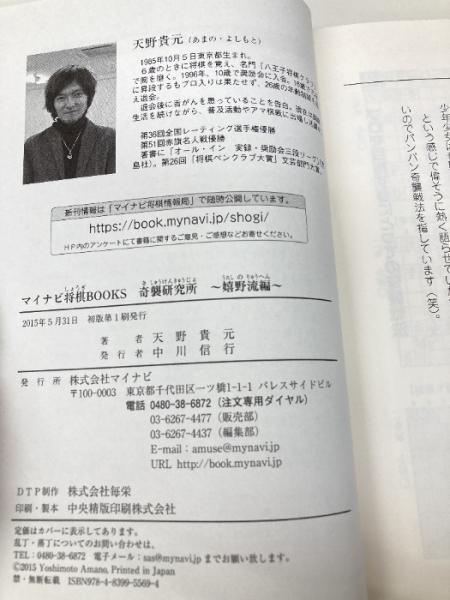 天野貴元(あまの・よしもと)
1985年10月5日東京都生まれ。
6歳のときに将棋を覚え、名門「八王子将棋クラブ」
で腕を磨く。1996年、10歳で奨励会に入会。16歳で三段
に昇段するもプロ入りは果たせず、26歳の年齢制限
え退会。
退会後に舌がんを患っていることを告白。
生活を続けながら、普及活動やアマ棋戦に出場し
第36回全国レーティング選手権優勝
第51回赤旗名人戦優勝
著書に「オール・イン 実録・奨励会三段リーグ」
島社)。第26回「将棋ペンクラブ大賞」文芸部門大賞
新刊情報は「マイナビ将棋情報局」で随時公開しています。
https://book.mynavi.jp/shogi/
HP内のアンケートにて書籍に関するご意見・ご感想などお寄せください。
マイナビ将棋BOOKS 奇襲研究所 〜嬉野流編〜
しょうぎ きしゅうけんきゅうじょ うれしのりゅうへん
2015年5月31日 初版第1刷発行
著者 天野貴元
発行者 中川信行
発行所 株式会社マイナビ
〒100-0003 東京都千代田区一ツ橋1-1-1 パレスサイドビル
電話 0480-38-6872(注文専用ダイヤル)
03-6267-4477(販売部)
03-6267-4437(編集部)
E-mail:amuse@mynavi.jp
URL http://book.mynavi.jp
DTP制作 株式会社毎栄
印刷・製本 中央精版印刷株式会社
定価はカバーに表示してあります。
乱丁・落丁についてのお問い合わせは、
TEL:0480-38-6872 電子メール:sas@mynavi.jpまでお願い致します。
©2015 Yoshimoto Amano, Printed in Japan
禁・無断転載 ISBN978-4-8399-5569-4
という感じで偉そうに熱く語らせていた
いのでバンバン奇襲戦法を指しています(笑)。